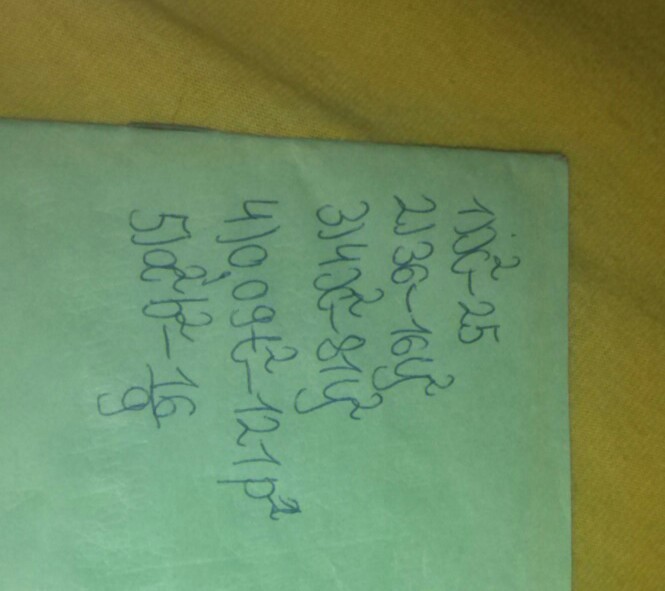 1)x²-25
2)36-16y²
3)4x²-81y²
4)0,09t²-121p²
5)a²b²-16/9